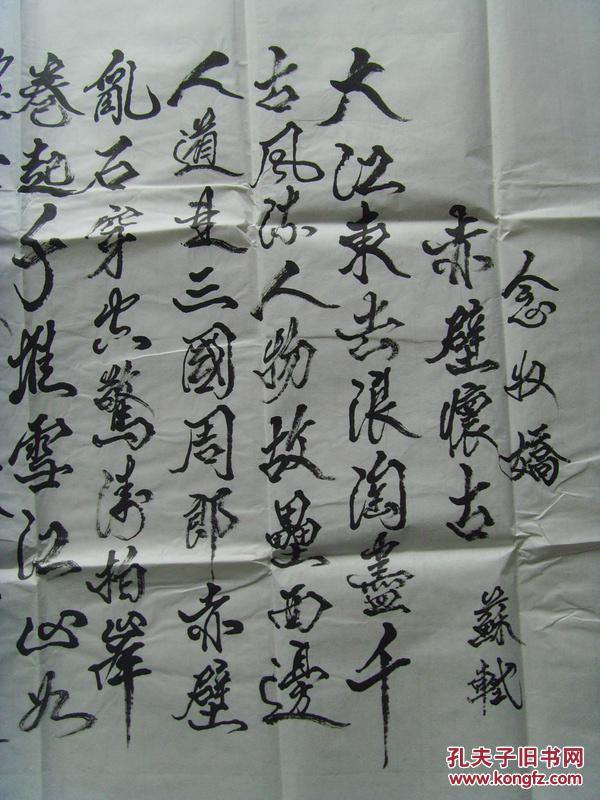 念奴嬌
赤壁懷古
蘇軾
大江東去浪淘盡千
古風流人物故壘西邊
人道是三國周郎赤壁
亂石穿空驚濤拍岸
卷起千堆雪江山如
孔夫子旧书网
www.kongfz.com